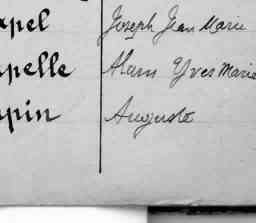 xpel Joseph Jean Marie
apelle Alain Yves Marie
apin Auguste